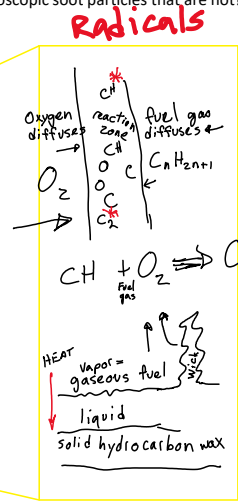 oscopic soot particles that are not
Radicals
CH*
Oxygen diffuses
reaction zone
fuel gas diffuses
CH
O
C
CnH2n+1
O2
O
C
C2*
CH + O2 ⇒
Fuel gas
HEAT
vapor =
gaseous fuel
wick
liquid
solid hydrocarbon wax